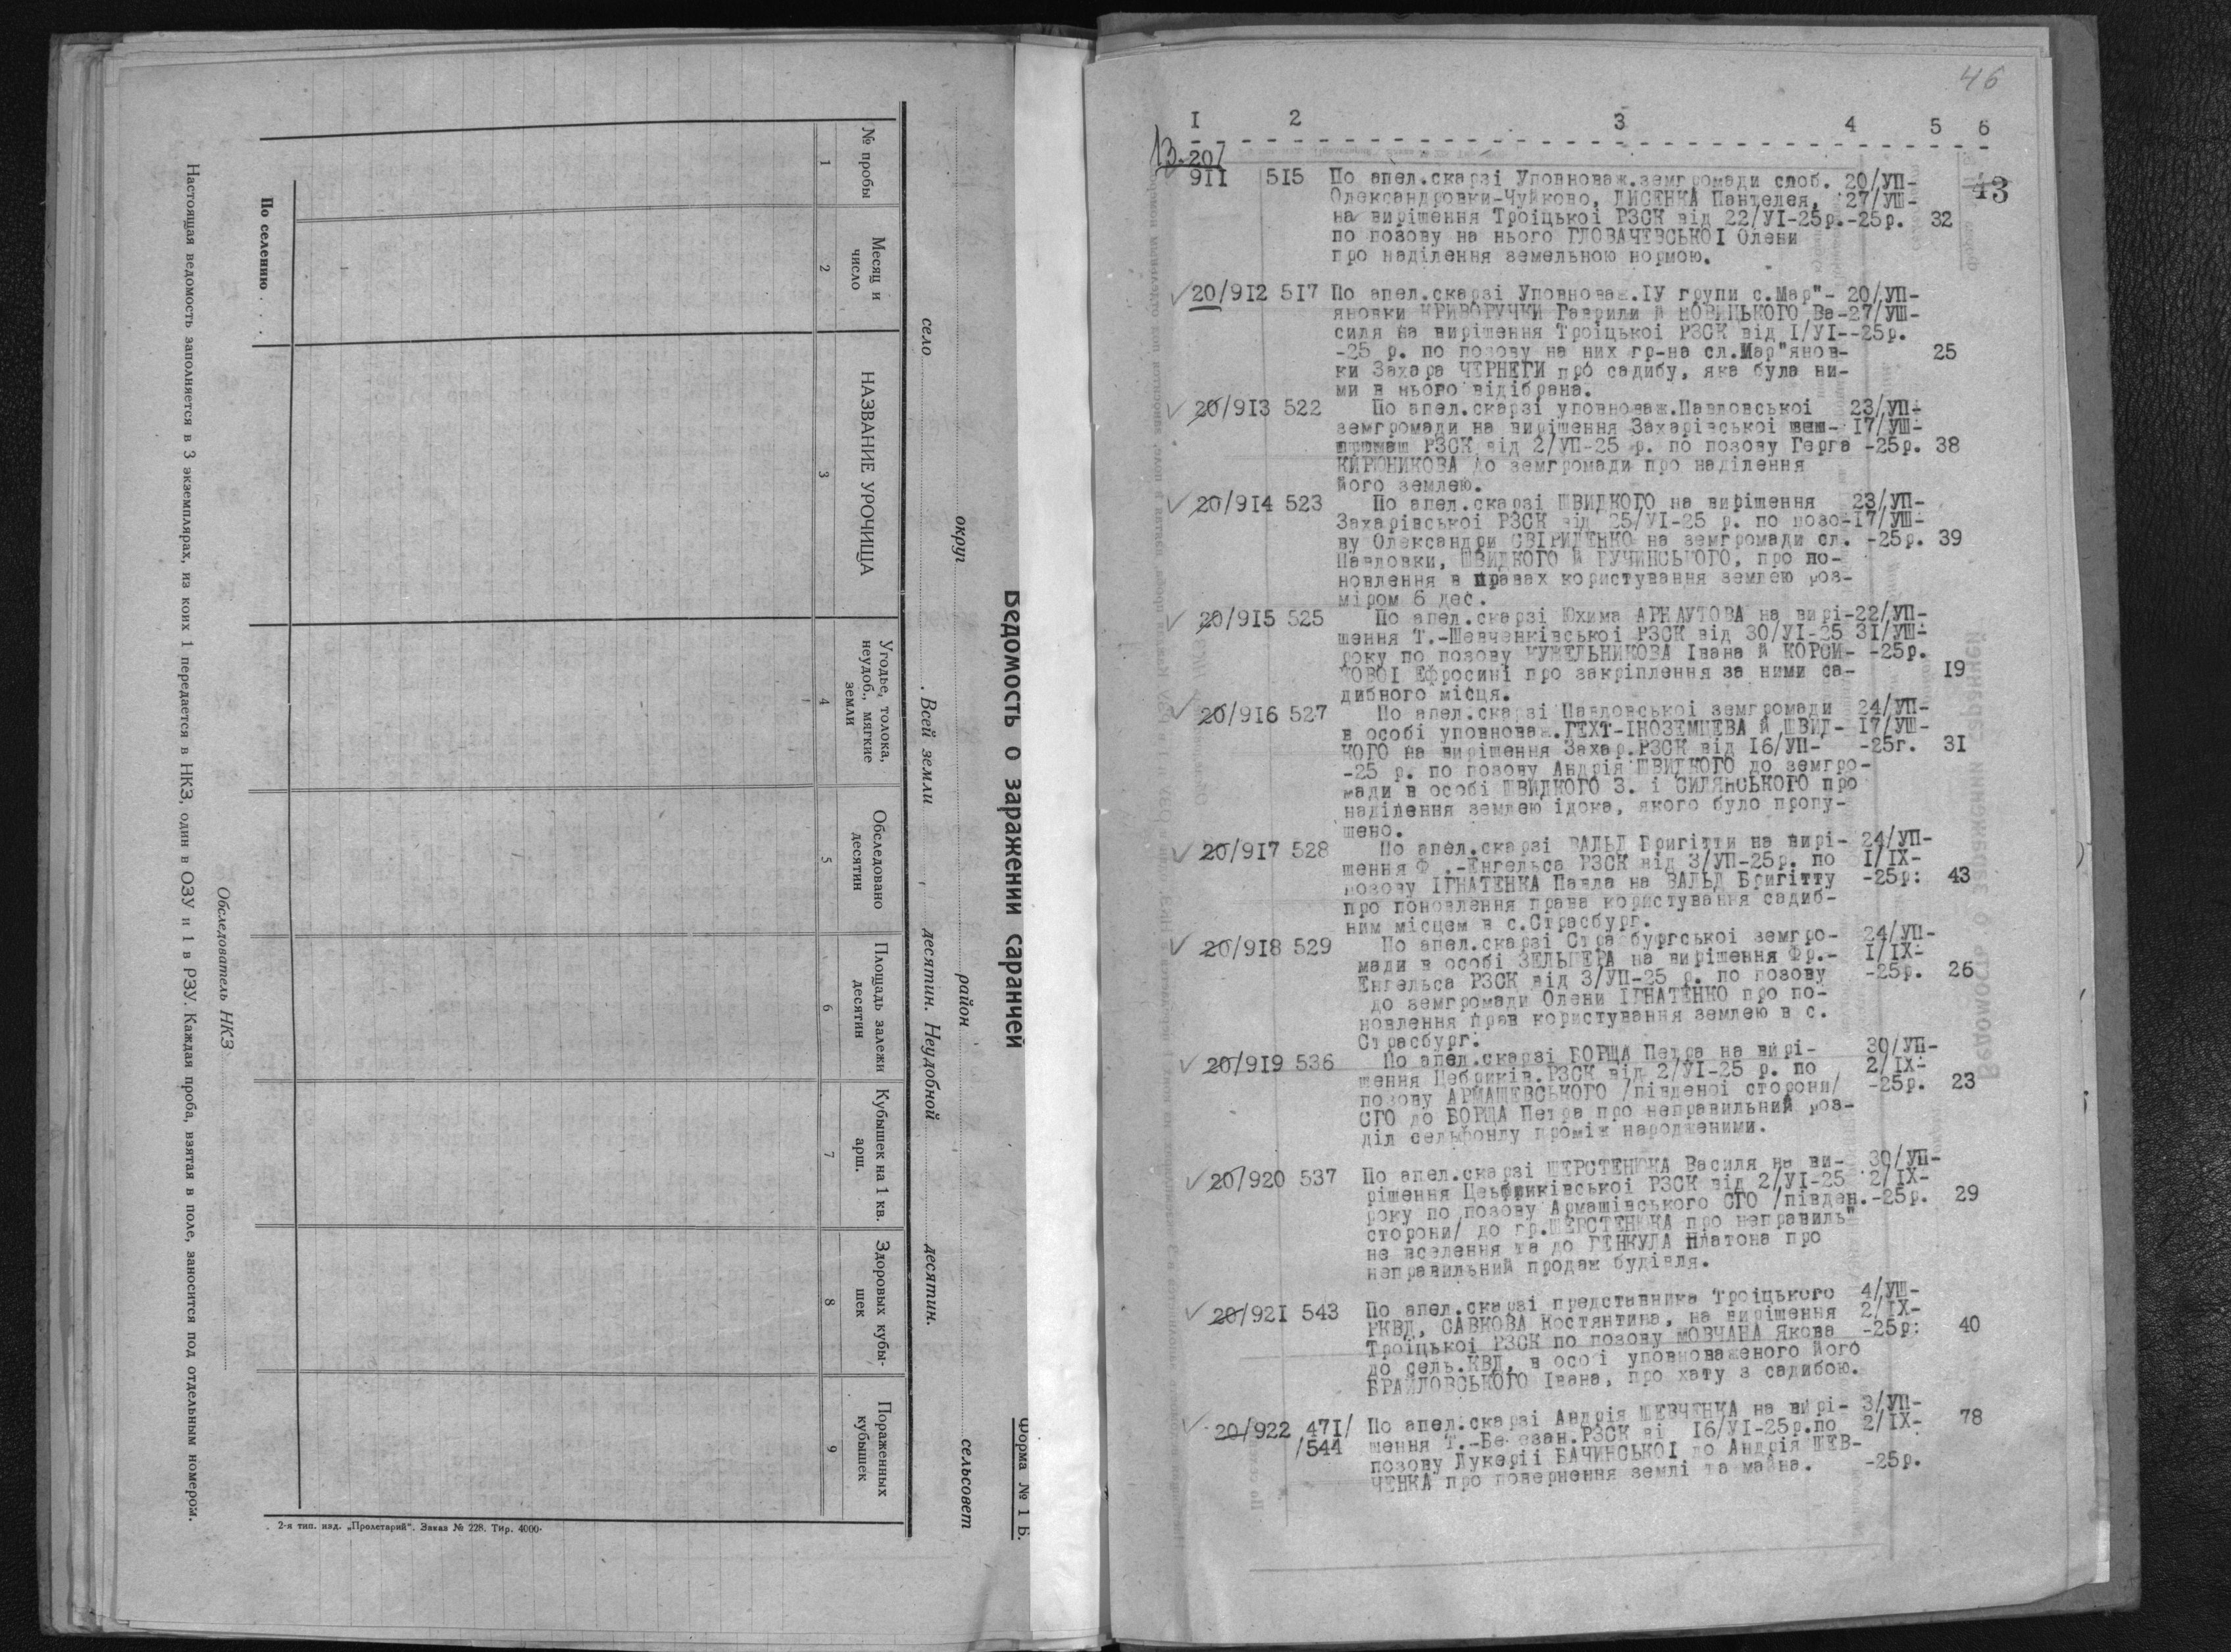 Ведомость о заражении саранчей
Форма № 1 Б.
округ район сельсовет
село Всей земли десятин. Неудобной десятин.
№ пробы
Месяц и число
НАЗВАНИЕ УРОЧИЩА
Угодье, толока, неудоб., мягкие земли
Обследовано десятин
Площадь залежи десятин
Кубышек на 1 кв. арш.
Здоровых кубышек
Пораженных кубышек
1 2 3 4 5 6 7 8 9
По селению . . . .
Обследователь НКЗ
Настоящая ведомость заполняется в 3 экземплярах, из коих 1 передается в НКЗ, один в ОЗУ и 1 в РЗУ. Каждая проба, взятая в поле, заносится под отдельным номером.
2-я тип. изд. „Пролетарий". Заказ № 228. Тир. 4000.
46
I 2 3 4 5 6
13. 20/
43
9II 5I5 По апел.скарзі Уповноваж.земгромади слоб. 20/УП-
Олександровки-Чуйково, ЛИСЕНКА Пантелея, 27/УШ-
на вирішення Троіцькоі РЗСК від 22/УІ-25р.-25р. 32
по позову на нього ГЛОВАЧЕВСЬКОІ Олени
про наділення земельною нормою.
20/9I2 5I7 По апел.скарзі Уповноваж.ІУ групи с.Мар"- 20/УП-
яновки КРИВОРУЧКИ Гаврили й НОВИЦЬКОГО Ва-27/УШ-
силя на вирішення Троіцькоі РЗСК від І/УІ--25р.
-25 р. по позову на них гр-на сл.Мар"янов- 25
ки Захара ЧЕРНЕГИ про садибу, яка була ни-
ми в нього відібрана.
20/9I3 522 По апел.скарзі уповноваж.Павловськоі 23/УП-
земгромади на вирішення Захарівськоі I7/УШ-
РЗСК від 2/УП-25 р. по позову Герга -25р. 38
КИРЮНИКОВА до земгромади про наділення
його землею.
20/9I4 523 По апел.скарзі ШВИДКОГО на вирішення 23/УП-
Захарівськоі РЗСК від 25/УІ-25 р. по позо-I7/УШ-
ву Олександри СВІРИДЕНКО на земгромади сл. -25р. 39
Павловки, ШВИДКОГО й ГУЧИНСЬКОГО, про по-
новлення в правах користування землею роз-
міром 6 дес.
20/9I5 525 По апел.скарзі Юхима АРНАУТОВА на вирі-22/УП-
шення Т.-Шевченківськоі РЗСК від 30/УІ-25 3I/УШ-
року по позову КУЖЕЛЬНИКОВА Івана й КОРОИ- -25р.
ТОВОІ Ефросині про закріплення за ними са- I9
дибного місця.
20/9I6 527 По апел.скарзі Павловськоі земгромади 24/УП-
в особі уповноваж.ГЕХТ-ІНОЗЕМЦЕВА й ШВИД- I7/УШ-
КОГО на вирішення Захар.РЗСК від I6/УП- -25г. 3I
-25 р. по позову Андрія ШВИДКОГО до земгро-
мади в особі ШВИДКОГО З. і СИЛЯНСЬКОГО про
наділення землею ідока, якого було пропу-
щено.
20/9I7 528 По апел.скарзі ВАЛЬД Бригітти на вирі- 24/УП-
шення Ф .-Енгельса РЗСК від 3/УП-25р. по І/ІХ-
позову ІГНАТЕНКА Павла на ВАЛЬД Бригітту -25р: 43
про поновлення права користування садиб-
ним місцем в с.Страсбург.
20/9I8 529 По апел.скарзі Страсбургськоі земгро- 24/УП-
мади в особі ЗЕЛЬЦЕРА на вирішення Фр.- І/ІХ-
Енгельса РЗСК від 3/УП-25 р. по позову -25р. 26
до земгромади Олени ІГНАТЕНКО про по-
новлення прав користування землею в с.
Страсбург.
20/9I9 536 По апел.скарзі БОРЩА Петра на вирі- 30/УП-
шення Цебриків.РЗСК від 2/УІ-25 р. по 2/ІХ-
позову АРМАШЕВСЬКОГО /південоі сторони/ -25р. 23
СГО до БОРЩА Петра про неправильний роз-
діл сельфонду проміж народженими.
20/920 537 По апел.скарзі ШЕРСТЕНЮКА Василя на ви- 30/УП-
рішення Цебриківськоі РЗСК від 2/УІ-25 2/ІХ-
року по позову Армашівського СГО /півден.-25р. 29
сторони/ до гр.ШЕРСТЕНЮКА про неправиль"
не вселення та до ГЕНКУЛА Платона про
неправильний продаж будівля.
20/92I 543 По апел.скарзі представника Троіцького 4/УШ-
РКВД, САВКОВА Костянтина, на вирішення 2/ІХ-
Троіцькоі РЗСК по позову МОВЧАНА Якова -25р: 40
до сель.КВД, в особі уповноваженого його
БРАЙЛОВСЬКОГО Івана, про хату з садибою.
20/922 47I/ По апел.скарзі Андрія ШЕВЧЕНКА на вирі- 3/УП-
/544 шення Т.-Березан.РЗСК ві I6/УІ-25р.по 2/ІХ- 78
позову Лукеріі БАЧИНСЬКОІ до Андрія ШЕВ-
ЧЕНКА про повернення землі та майна. -25р.